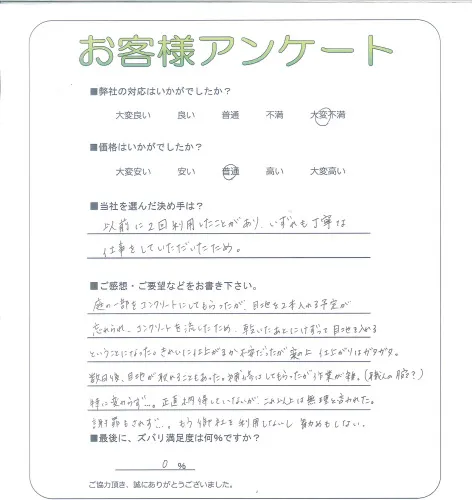 お客様アンケート
■弊社の対応はいかがでしたか？
大変良い 良い 普通 不満 大変不満
■価格はいかがでしたか？
大変安い 安い 普通 高い 大変高い
■当社を選んだ決め手は？
以前に2回利用したことがあり、いずれも丁寧な
仕事をしていただいたため。
■ご感想・ご要望などをお書き下さい。
庭の一部をコンクリートにしてもらったが、目地を2本入れる予定が
忘れられ、コンクリートを流したため、乾いたあとにけずって目地を入れる
ということになった。きれいに仕上がるか不安だったが案の上 仕上がりはガタガタ。
数日後、目地が取れることもあった。補修はしてもらったが作業が雑。(職人の腕?)
特に変わらず…。正直納得していないが、これ以上は無理と言われた。
謝罪もされず…。もう御社を利用しないし 勧めもしない。
■最後に、ズバリ満足度は何%ですか？
0 %
ご協力頂き、誠にありがとうございました。